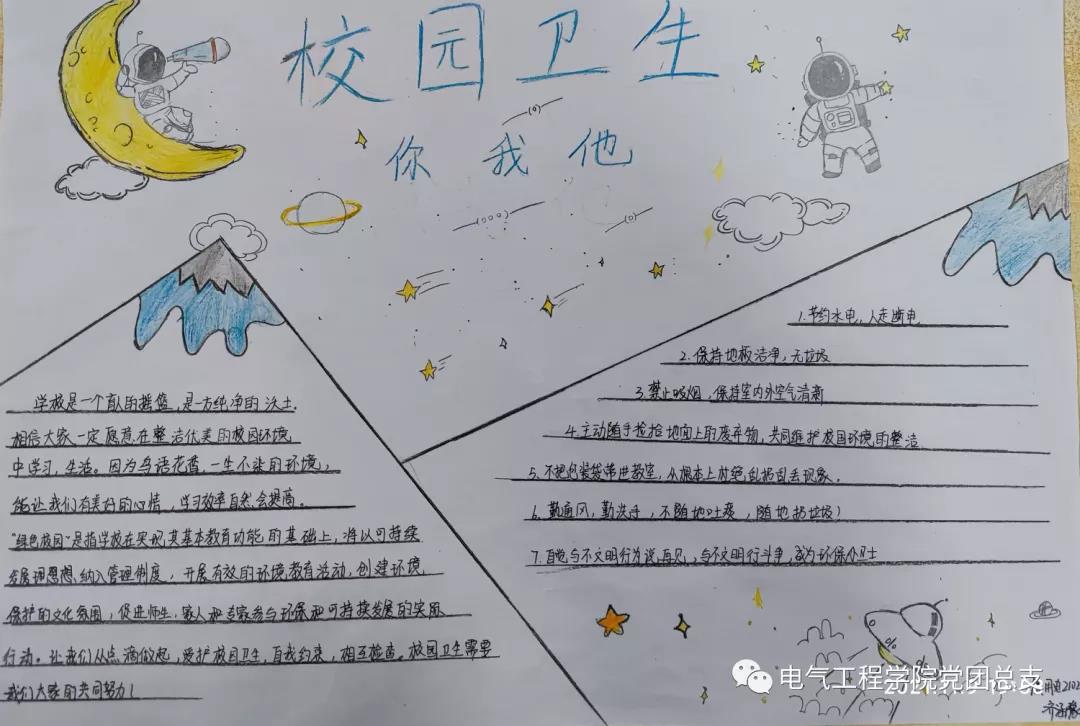 校园卫生
你我他
学校是一个育人的摇篮，是一方纯净的沃土。
相信大家一定愿意在整洁优美的校园环境
中学习，生活。因为鸟语花香，一尘不染的环境，
能让我们有美好的心情，学习效率自然会提高。
"绿色校园"是指学校在实现其基本教育功能的基础上，将以可持续
发展理思想纳入管理制度，开展有效的环境教育活动，创建环境
保护的文化氛围，促进师生，家人和专家参与环保和可持续发展的实际
行动。让我们从点滴做起，爱护校园卫生，自我约束，相互检查。校园卫生需要
我们大家的共同努力！
1.节约水电，人走断电
2.保持地板洁净，无垃圾
3.禁止吸烟，保持室内外空气清新
4.主动随手捡拾地面上的废弃物，共同维护校园环境的整洁
5.不把包装袋带进教室，从根本上杜绝乱扔乱丢现象。
6.勤通风，勤洗手，不随地吐痰，随地扔垃圾）
7.自觉与不文明行为说再见，与不文明行斗争，成为环保小卫士
电气工程学院党团总支
2102